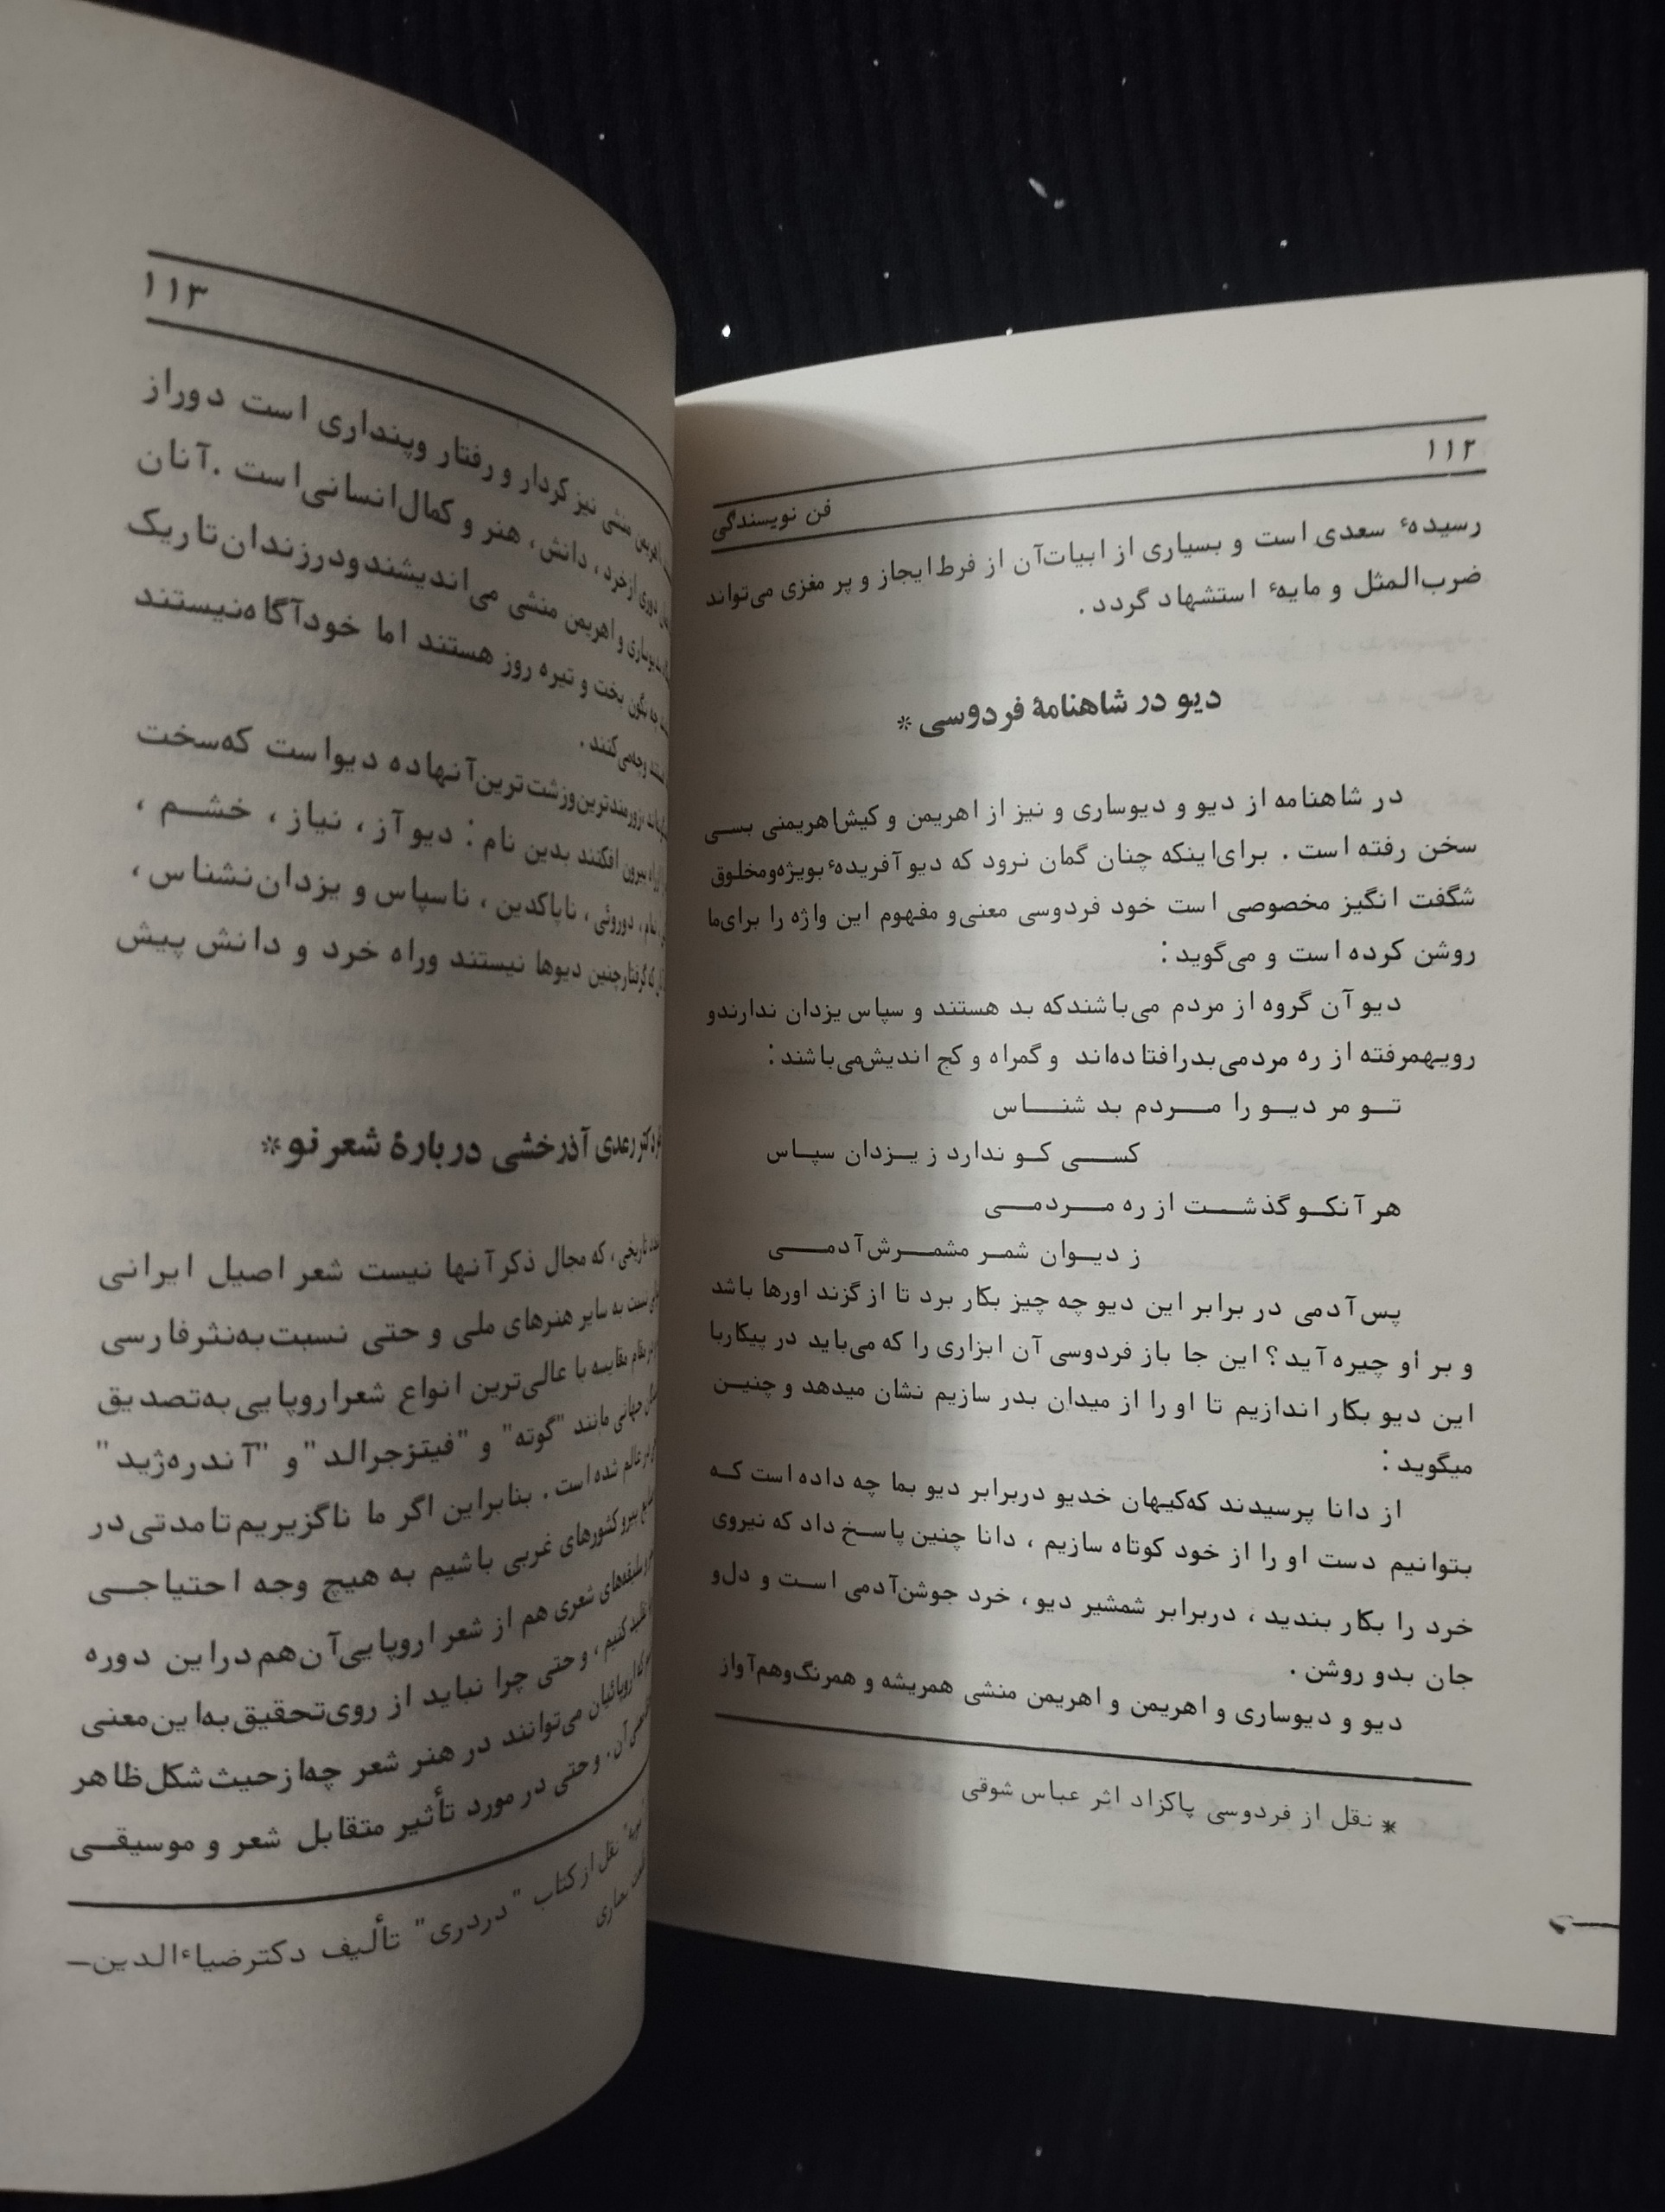 ۱۱۲
فن نویسندگی
رسیدهٔ سعدی است و بسیاری از ابیات‌آن از فرط‌ایجاز و پر مغزی می‌تواند
ضرب‌المثل و مایهٔ استشهاد گردد .
دیو در شاهنامهٔ فردوسی *
در شاهنامه از دیو و دیوساری و نیز از اهریمن و کیش‌اهریمنی بسی
سخن رفته است . برای‌اینکه چنان گمان نرود که دیو آفریدهٔ بویژه‌ومخلوق
شگفت انگیز مخصوصی است خود فردوسی معنی‌و مفهوم این واژه را برای‌ما
روشن کرده است و می‌گوید :
دیو آن گروه از مردم می‌باشندکه بد هستند و سپاس یزدان ندارندو
رویهمرفته از ره مردمی‌بدرافتاده‌اند و گمراه و کج اندیش‌می‌باشند :
تو مر دیو را مردم بد شناس
کسی کو ندارد ز یزدان سپاس
هر آنکو گذشت از ره مردمی
ز دیوان شمر مشمرش‌آدمی
پس‌آدمی در برابر این دیو چه چیز بکار برد تا از گزند اورها باشد
و بر او چیره آید ؟ این جا باز فردوسی آن ابزاری را که می‌باید در پیکاربا
این دیو بکار اندازیم تا او را از میدان بدر سازیم نشان میدهد و چنین
میگوید :
از دانا پرسیدند که‌کیهان خدیو دربرابر دیو بما چه داده است که
بتوانیم دست او را از خود کوتاه سازیم ، دانا چنین پاسخ داد که نیروی
خرد را بکار بندید ، دربرابر شمشیر دیو ، خرد جوشن‌آدمی است و دل‌و
جان بدو روشن .
دیو و دیوساری و اهریمن و اهریمن منشی همریشه و همرنگ‌وهم‌آواز
* نقل از فردوسی پاکزاد اثر عباس شوقی
۱۱۳
اهریمن منشی نیز کردار و رفتار وپنداری است دوراز
دوری ازخرد ، دانش ، هنر و کمال‌انسانی‌است . آنان
و اهریمن منشی می‌اندیشندودرزندان‌تاریک
نگون بخت و تیره روز هستند اما خودآگاه‌نیستند
وچه‌می‌کنند .
زورمندترین‌وزشت‌ترین‌آنهاده دیواست که‌سخت
بیرون افکنند بدین نام : دیوآز ، نیاز ، خشم ،
دوروئی ، ناپاکدین ، ناسپاس و یزدان‌نشناس ،
گرفتارچنین دیوها نیستند وراه خرد و دانش پیش
دکتر رعدی آذرخشی دربارهٔ شعر نو *
تاریخی ، که مجال ذکرآنها نیست شعر اصیل ایرانی
نسبت به سایر هنرهای ملی و حتی نسبت‌به‌نثرفارسی
مقایسه با عالی‌ترین انواع شعراروپایی‌به‌تصدیق
جهانی مانند "گوته" و "فیتزجرالد" و "آندره‌ژید"
عالم شده است . بنابراین اگر ما ناگزیریم‌تامدتی‌در
پیرو کشورهای غربی باشیم به هیچ وجه احتیاجی
سلیقه‌های شعری هم از شعر اروپایی‌آن‌هم‌دراین دوره
تقلید کنیم ، وحتی چرا نباید از روی‌تحقیق‌به‌این‌معنی
که اروپائیان می‌توانند در هنر شعر چه‌ازحیث‌شکل‌ظاهر
آن . وحتی در مورد تأثیر متقابل شعر و موسیقی
نقل از کتاب "دردری" تألیف دکترضیاءالدین—